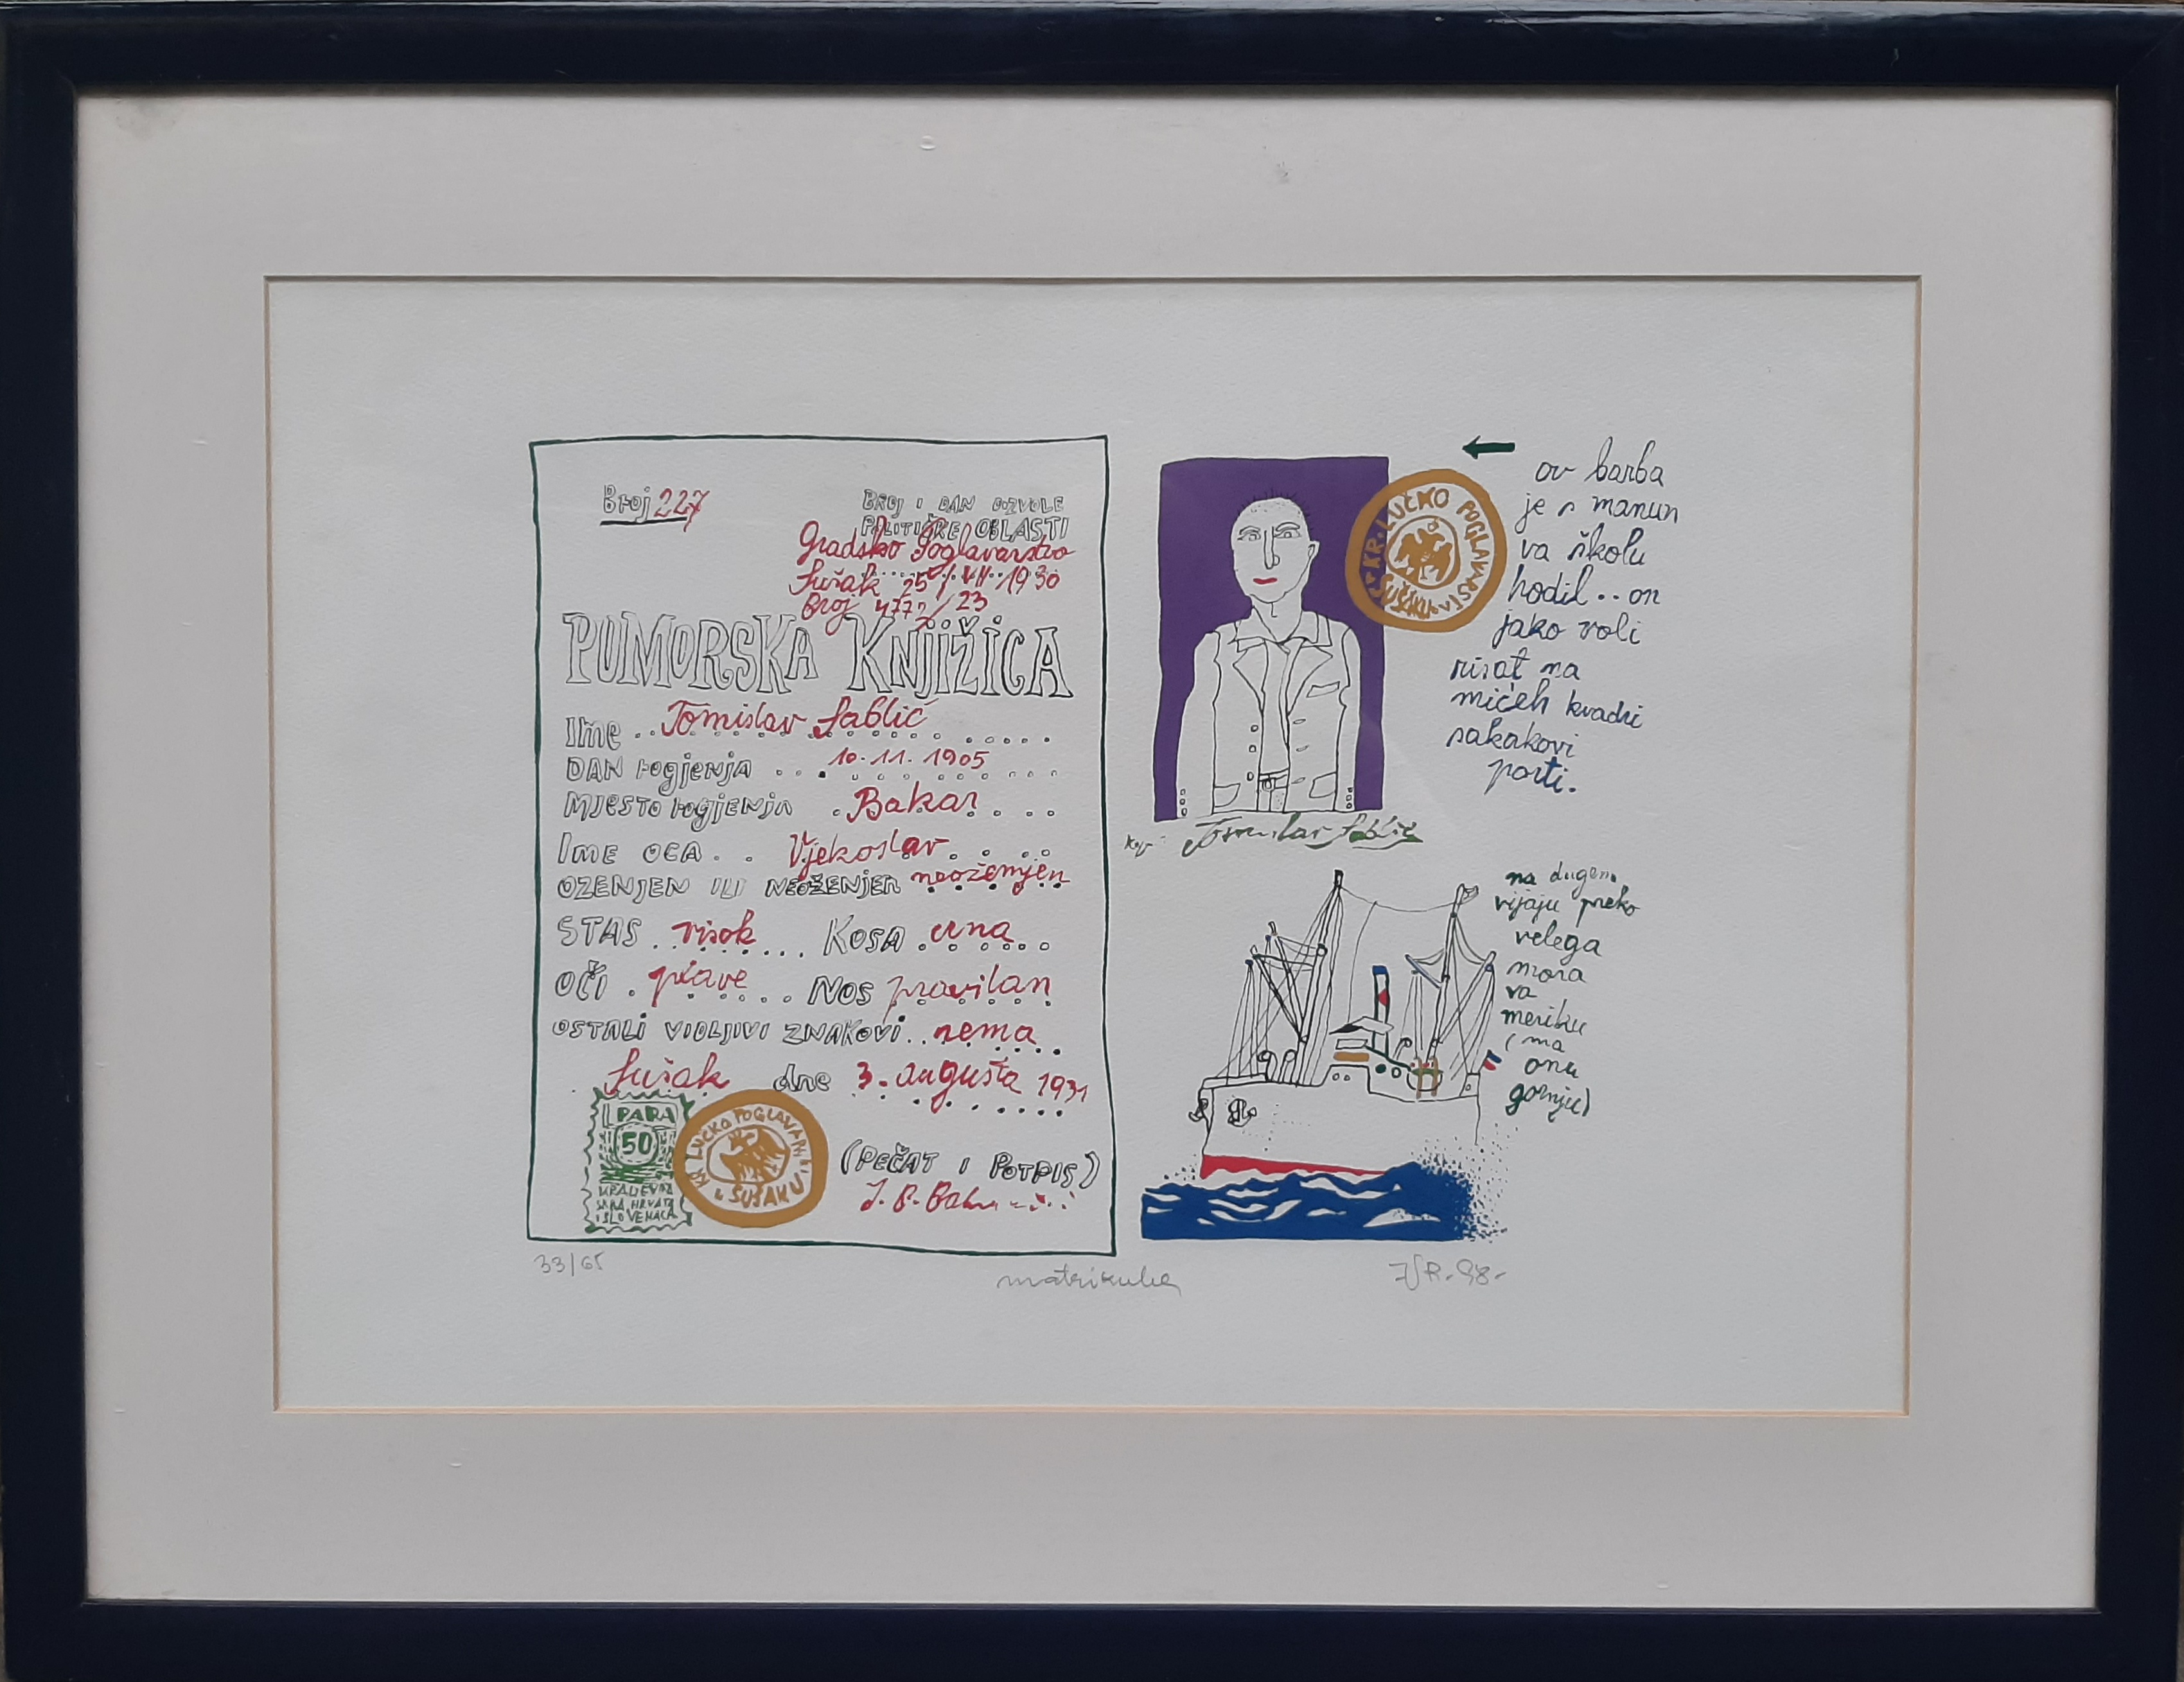 Broj 227
BROJ I DAN DOZVOLE
POLITIČKE OBLASTI
Gradsko Poglavarstvo
Sušak 25 VII 1930
Broj 4772/23
PUMORSKA KNJIŽICA
Ime Tomislav Sablić
DAN rogjenja 10.11.1905
MJESTO rogjENJA Bakar
IME OCA Vjekoslav
OZENJEN ILI NEOŽENJEN neoženjen
STAS visok KOSA crna
OČI plave NOS pravilan
OSTALI VIDLJIVI ZNAKOVI nema
Sušak dne 3. augusta 1931
PARA
50
KRALJEVINA
SRBA, HRVATA
I SLOVENACA
KR. LUČKO POGLAVAR
U SUŠAKU
(PEČAT I POTPIS)
J. B.
KR. LUČKO POGLAVARSTVO
SUŠAKU
Tomislav Sablić
ov barba
je s manun
va školu
hodil.. on
jako voli
risat na
mićeh kvadri
sakakovi
porti.
na dugen
vijaju preko
velega
mora
va
meriku
(ma
onu
gornju)
33/65
matrikula
98